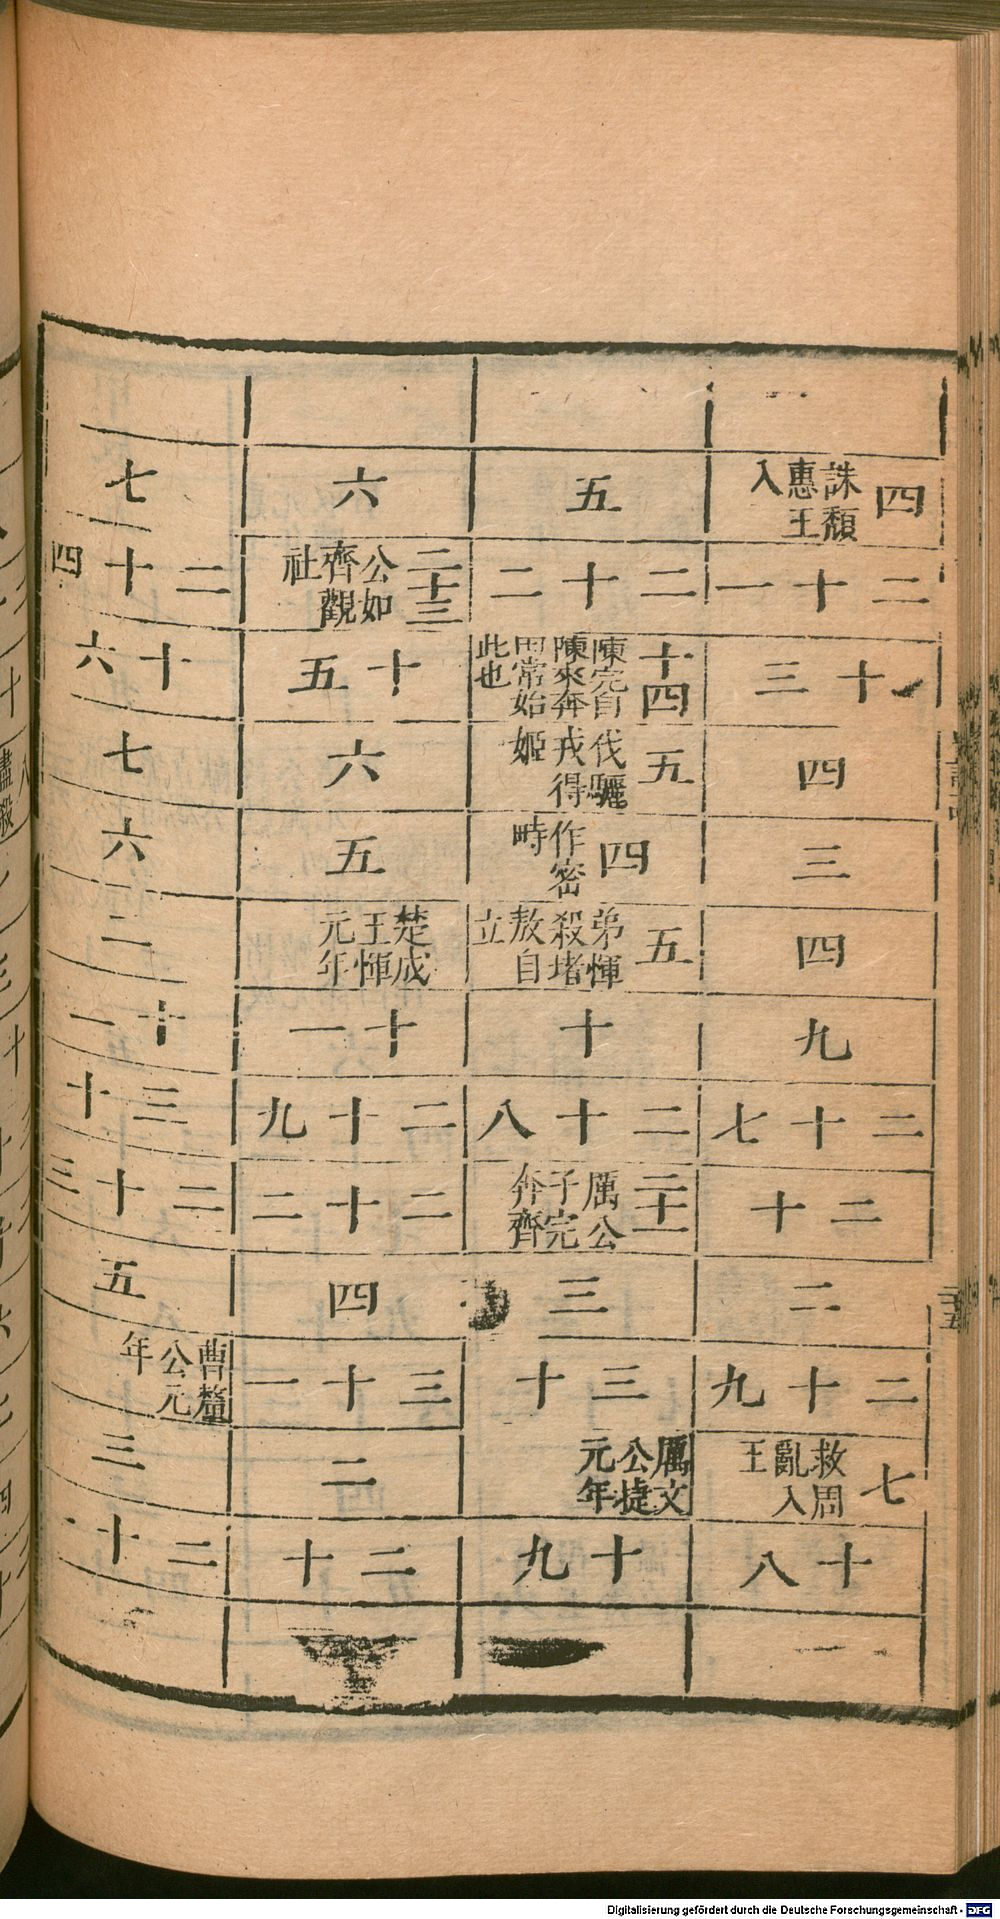 四 誅頽惠王入
二十一
十三
四
三
四
九
二十七
二十
二
二十九
七 救周亂入王
十八
五
二十二
十四 陳完自陳來奔田常始此也
五 伐驪戎得姬
四 作密畤
五 弟惲殺堵敖自立
十
二十八
二十一 厲公子完奔齊
三
三十
厲文公捷元年
十九
六
二十三 公如齊觀社
十五
六
五
楚成王惲元年
十一
二十九
二十二
四
三十一
二
二十
七
二十四
十六
七
六
二
十一
三十
二十三
五
曹釐公元年
三
二十一
Digitalisierung gefördert durch die Deutsche Forschungsgemeinschaft - DFG